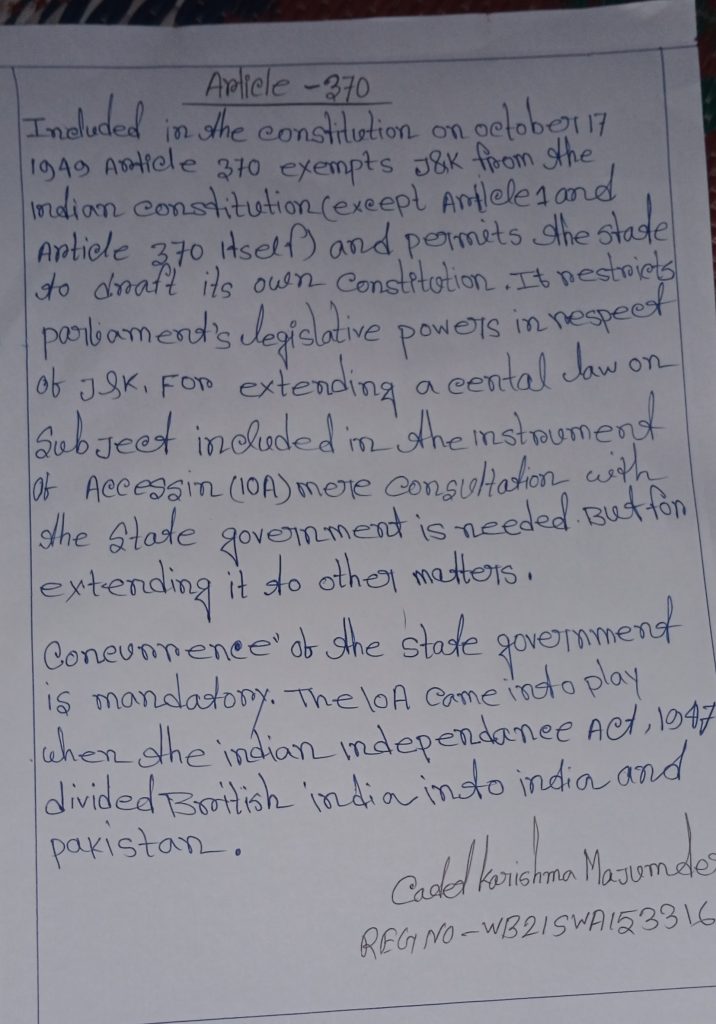 Article - 370
Included in the constitution on october 17
1949 Article 370 exempts J&K from the
indian constitution (except Article 1 and
Article 370 itself) and permits the state
to draft its own Constitution. It restricts
parliament's legislative powers in respect
of J&K. For extending a cental law on
Subject included in the instrument
Of Accessin (IOA) mere consultation with
the State government is needed. But for
extending it to other matters.
Concurrence' of the state government
is mandatory. The IOA came into play
when the indian independance Act, 1947
divided British india into india and
pakistan.
Cadet Karishma Majumder
REG NO - WB21SWA153316